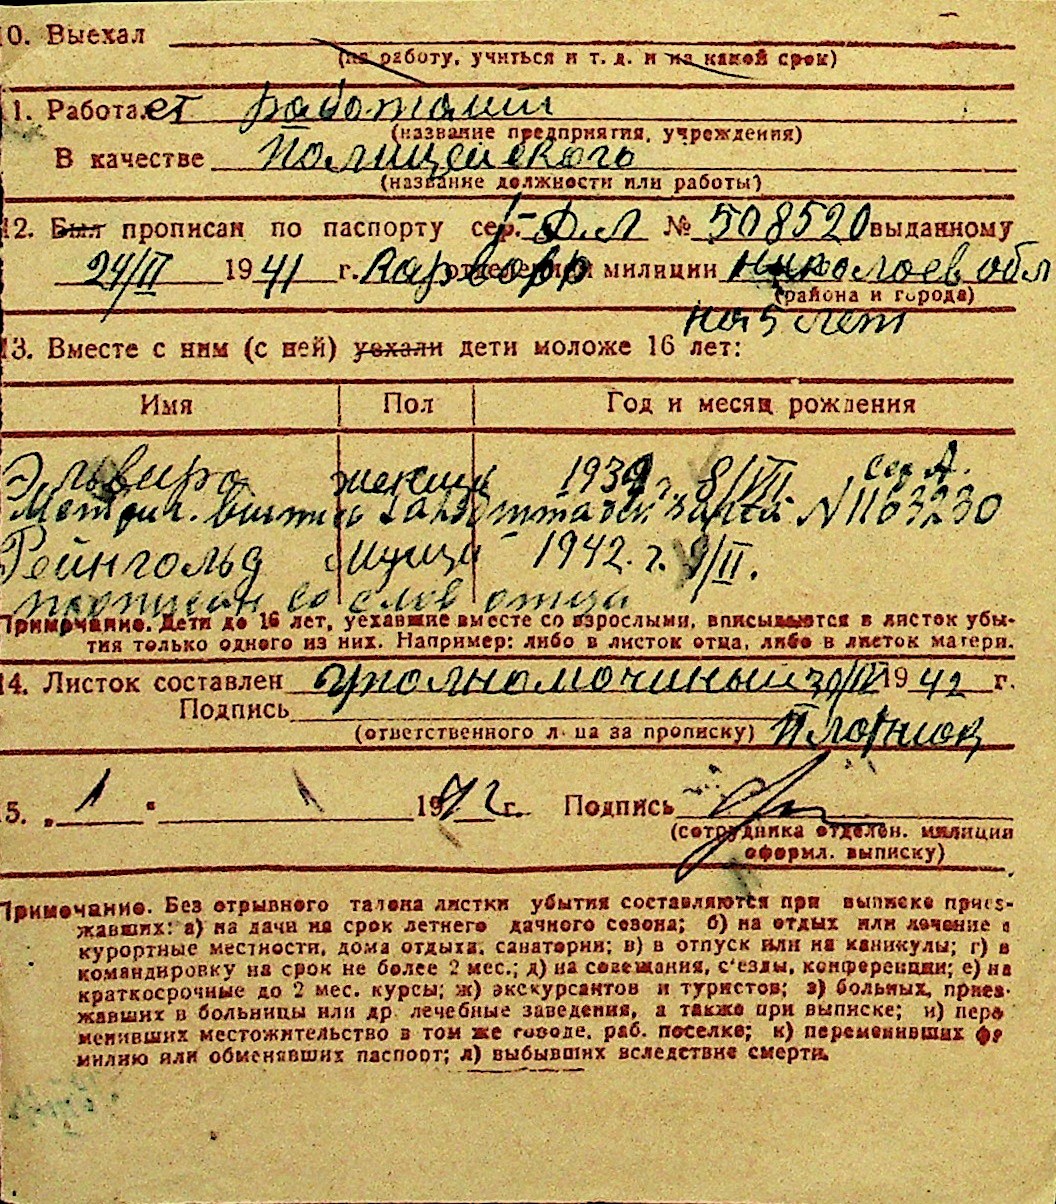 10. Выехал
(на работу, учиться и т. д. и на какой срок)
11. Работает
(название предприятия, учреждения)
В качестве полицейского
(название должности или работы)
12. Был прописан по паспорту сер. № 508520 выданному
24/II 1941 г. отделением милиции Николаев обл
(района и города)
на 5 лет
13. Вместе с ним (с ней) уехали дети моложе 16 лет:
Имя Пол Год и месяц рождения
Эльвира женщ 1939 г. 8/VII сер А.
№ 1163230
Рейнгольд мущи 1942. г. 9/II.
прописан со слов отца
Примечание. Дети до 16 лет, уехавшие вместе со взрослыми, вписываются в листок убы-
тия только одного из них. Например: либо в листок отца, либо в листок матери.
14. Листок составлен уполномочиный 1942 г.
Подпись
(ответственного лица за прописку)
15. „ 1 " 1 1942 г. Подпись
(сотрудника отделен. милиции
оформл. выписку)
Примечание. Без отрывного талона листки убытия составляются при выписке приез-
жавших: а) на дачи на срок летнего дачного сезона; б) на отдых или лечение в
курортные местности, дома отдыха, санатории; в) в отпуск или на каникулы; г) в
командировку на срок не более 2 мес.; д) на совещания, с'езды, конференции; е) на
краткосрочные до 2 мес. курсы; ж) экскурсантов и туристов; з) больных, приез-
жавших в больницы или др. лечебные заведения, а также при выписке; и) пере
менивших местожительство в том же городе, раб. поселке; к) переменивших фа
милию или обменявших паспорт; л) выбывших вследствие смерти.